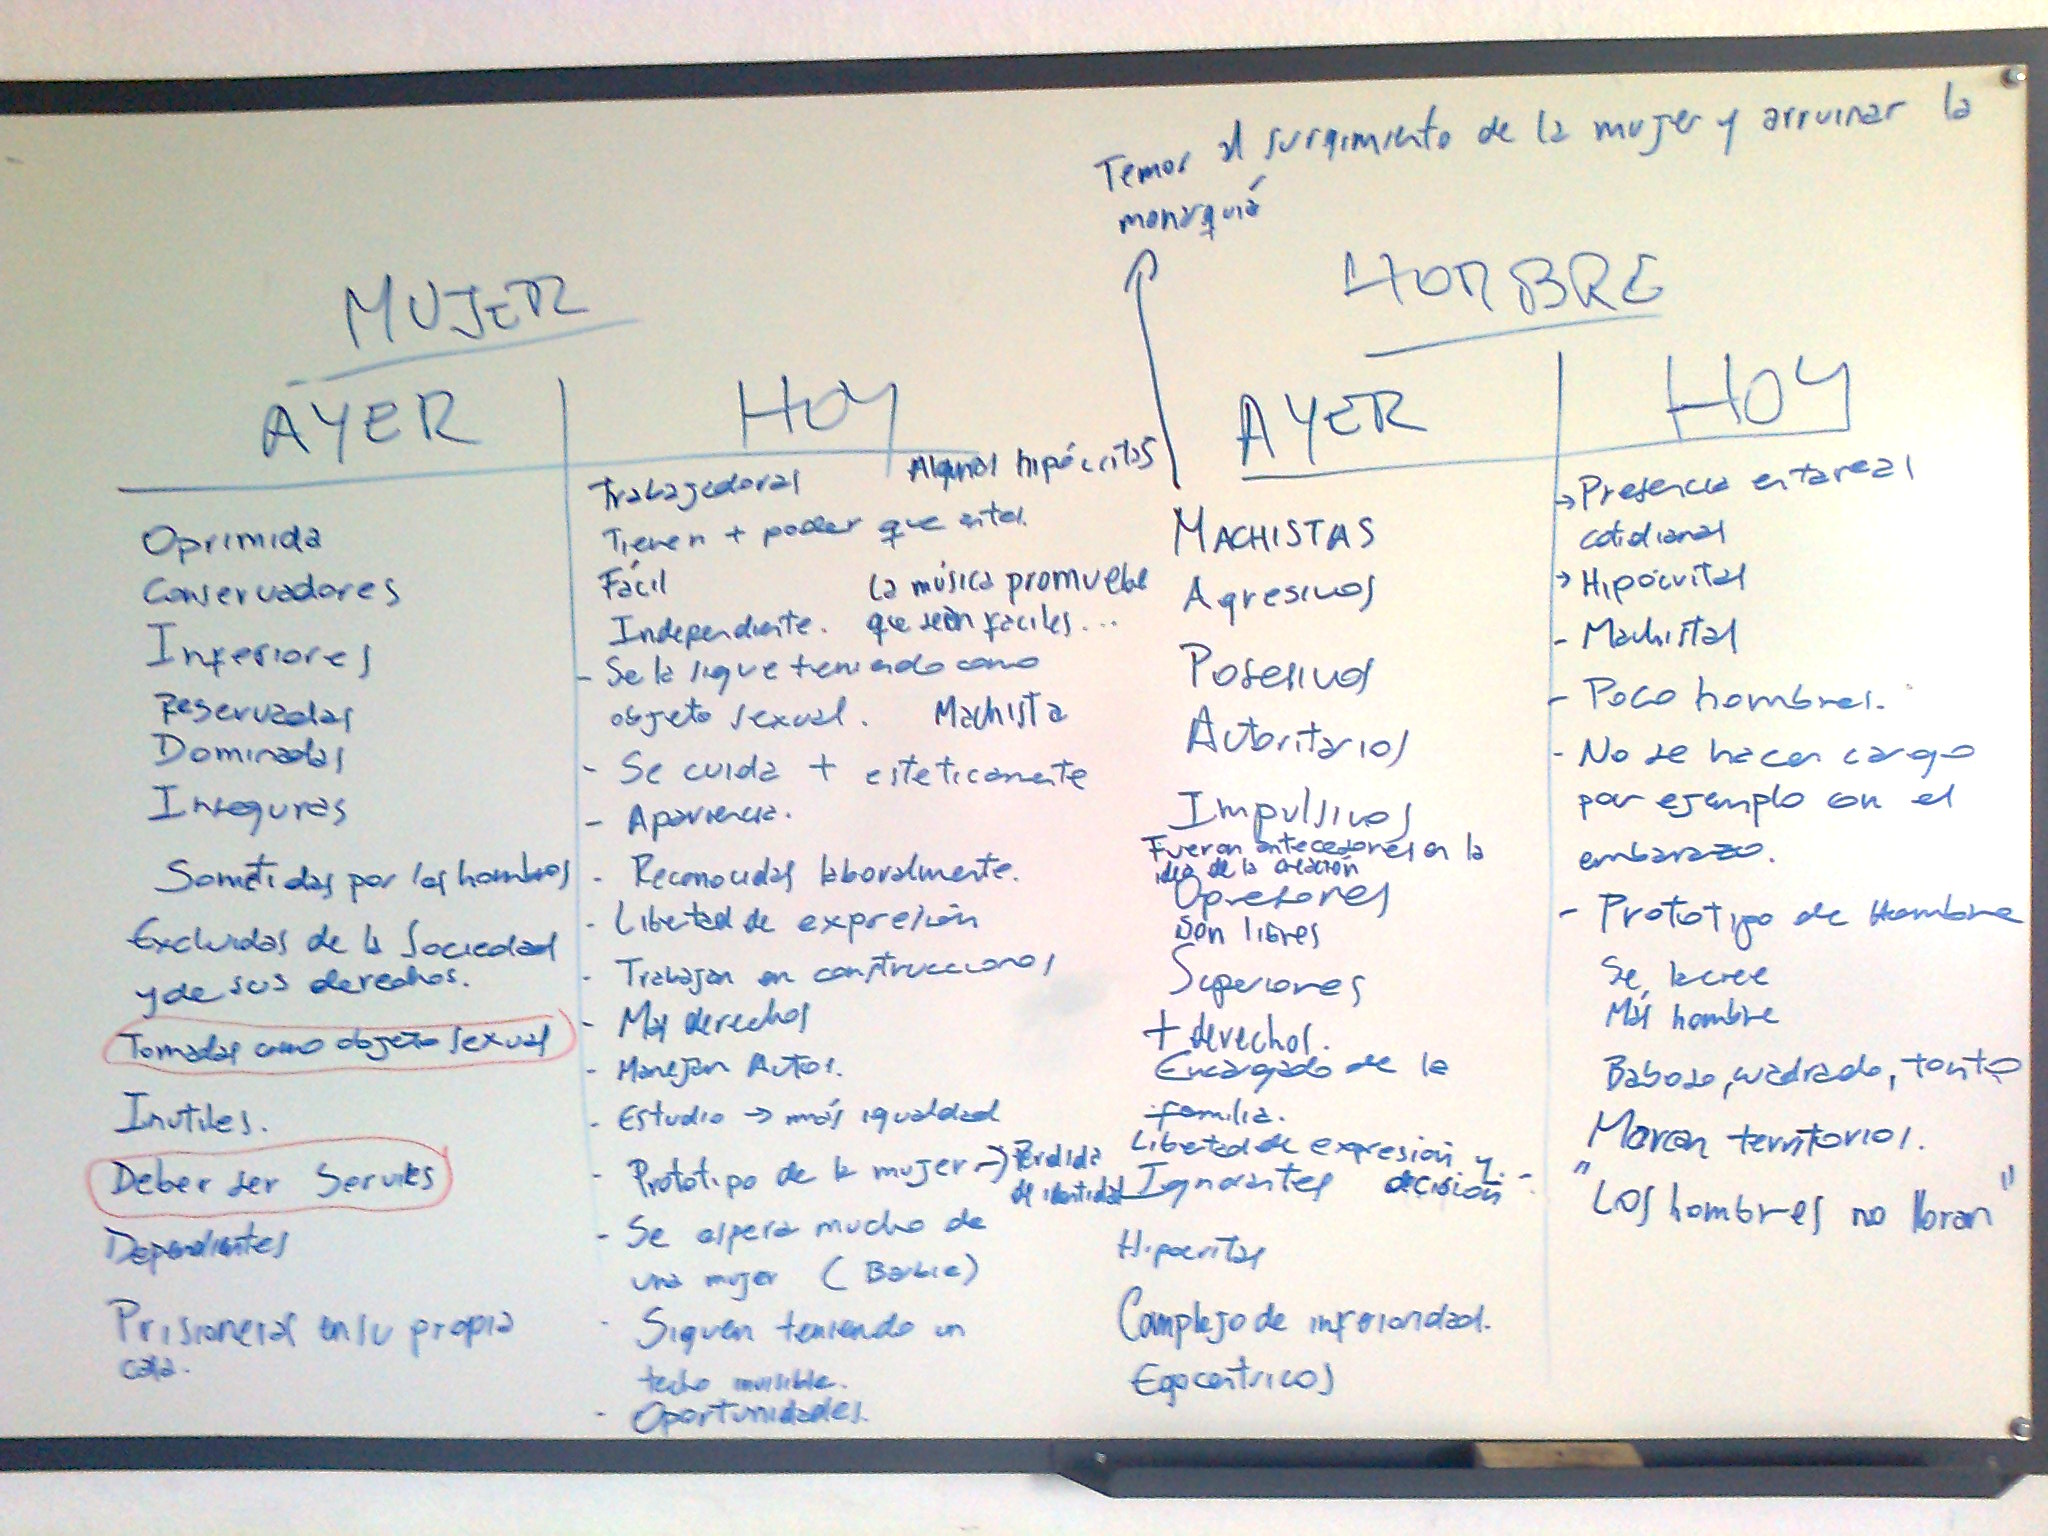 Temor al surgimiento de la mujer y arruinar la
monarquía
MUJER
AYER
Oprimida
Conservadores
Inferiores
Reservadas
Dominadas
Inseguras
Sometidas por los hombres
Excluidas de la Sociedad
y de sus derechos.
Tomadas como objeto sexual
Inutiles.
Deber ser Serviles
Dependientes
Prisioneras en su propia
casa.
HOY
Trabajadoras Algunas hipócritas
Tienen + poder que antes.
Fácil La música promueve
Independiente. que sean fáciles...
- Se la sigue teniendo como
objeto sexual. Machista
- Se cuida + esteticamente
- Apariencia.
- Reconocidas laboralmente.
- Libertad de expresión
- Trabajan en construcciones
- Más derechos
- Manejan Autos.
- Estudio → más igualdad
- Prototipo de la mujer → Perdida
de identidad
- Se espera mucho de
una mujer (Barbie)
- Siguen teniendo un
techo invisible.
- Oportunidades.
HOMBRE
AYER
MACHISTAS
Agresivos
Posesivos
Autoritarios
Impulsivos
Fueron antecedores en la
idea de la creación
Opresores
Son libres
Superiores
+ derechos.
Encargado de la
familia.
Libertad de expresión y
decisión
Ignorantes
Hipocritas
Complejo de inferioridad.
Egocentricos
HOY
→ Presencia en tareas
cotidianas
→ Hipócritas
- Machistas
- Poco hombres.
- No se hacen cargo
por ejemplo con el
embarazo.
- Prototipo de Hombre
Se la cree
Más hombre
Baboso, cuadrado, tonto
Marcan territorios.
"Los hombres no lloran"